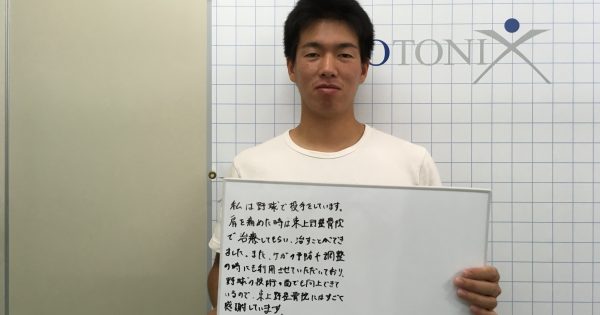 OTONIX
私は野球で投手をしています。
肩を痛めた時は東上野整骨院
で治療してもらい、治すことができ
ました。また、ケガの予防や調整
の時にも利用させていただいており、
野球の技術の面でも向上できて
いるので、東上野整骨院にはすごく
感謝しています